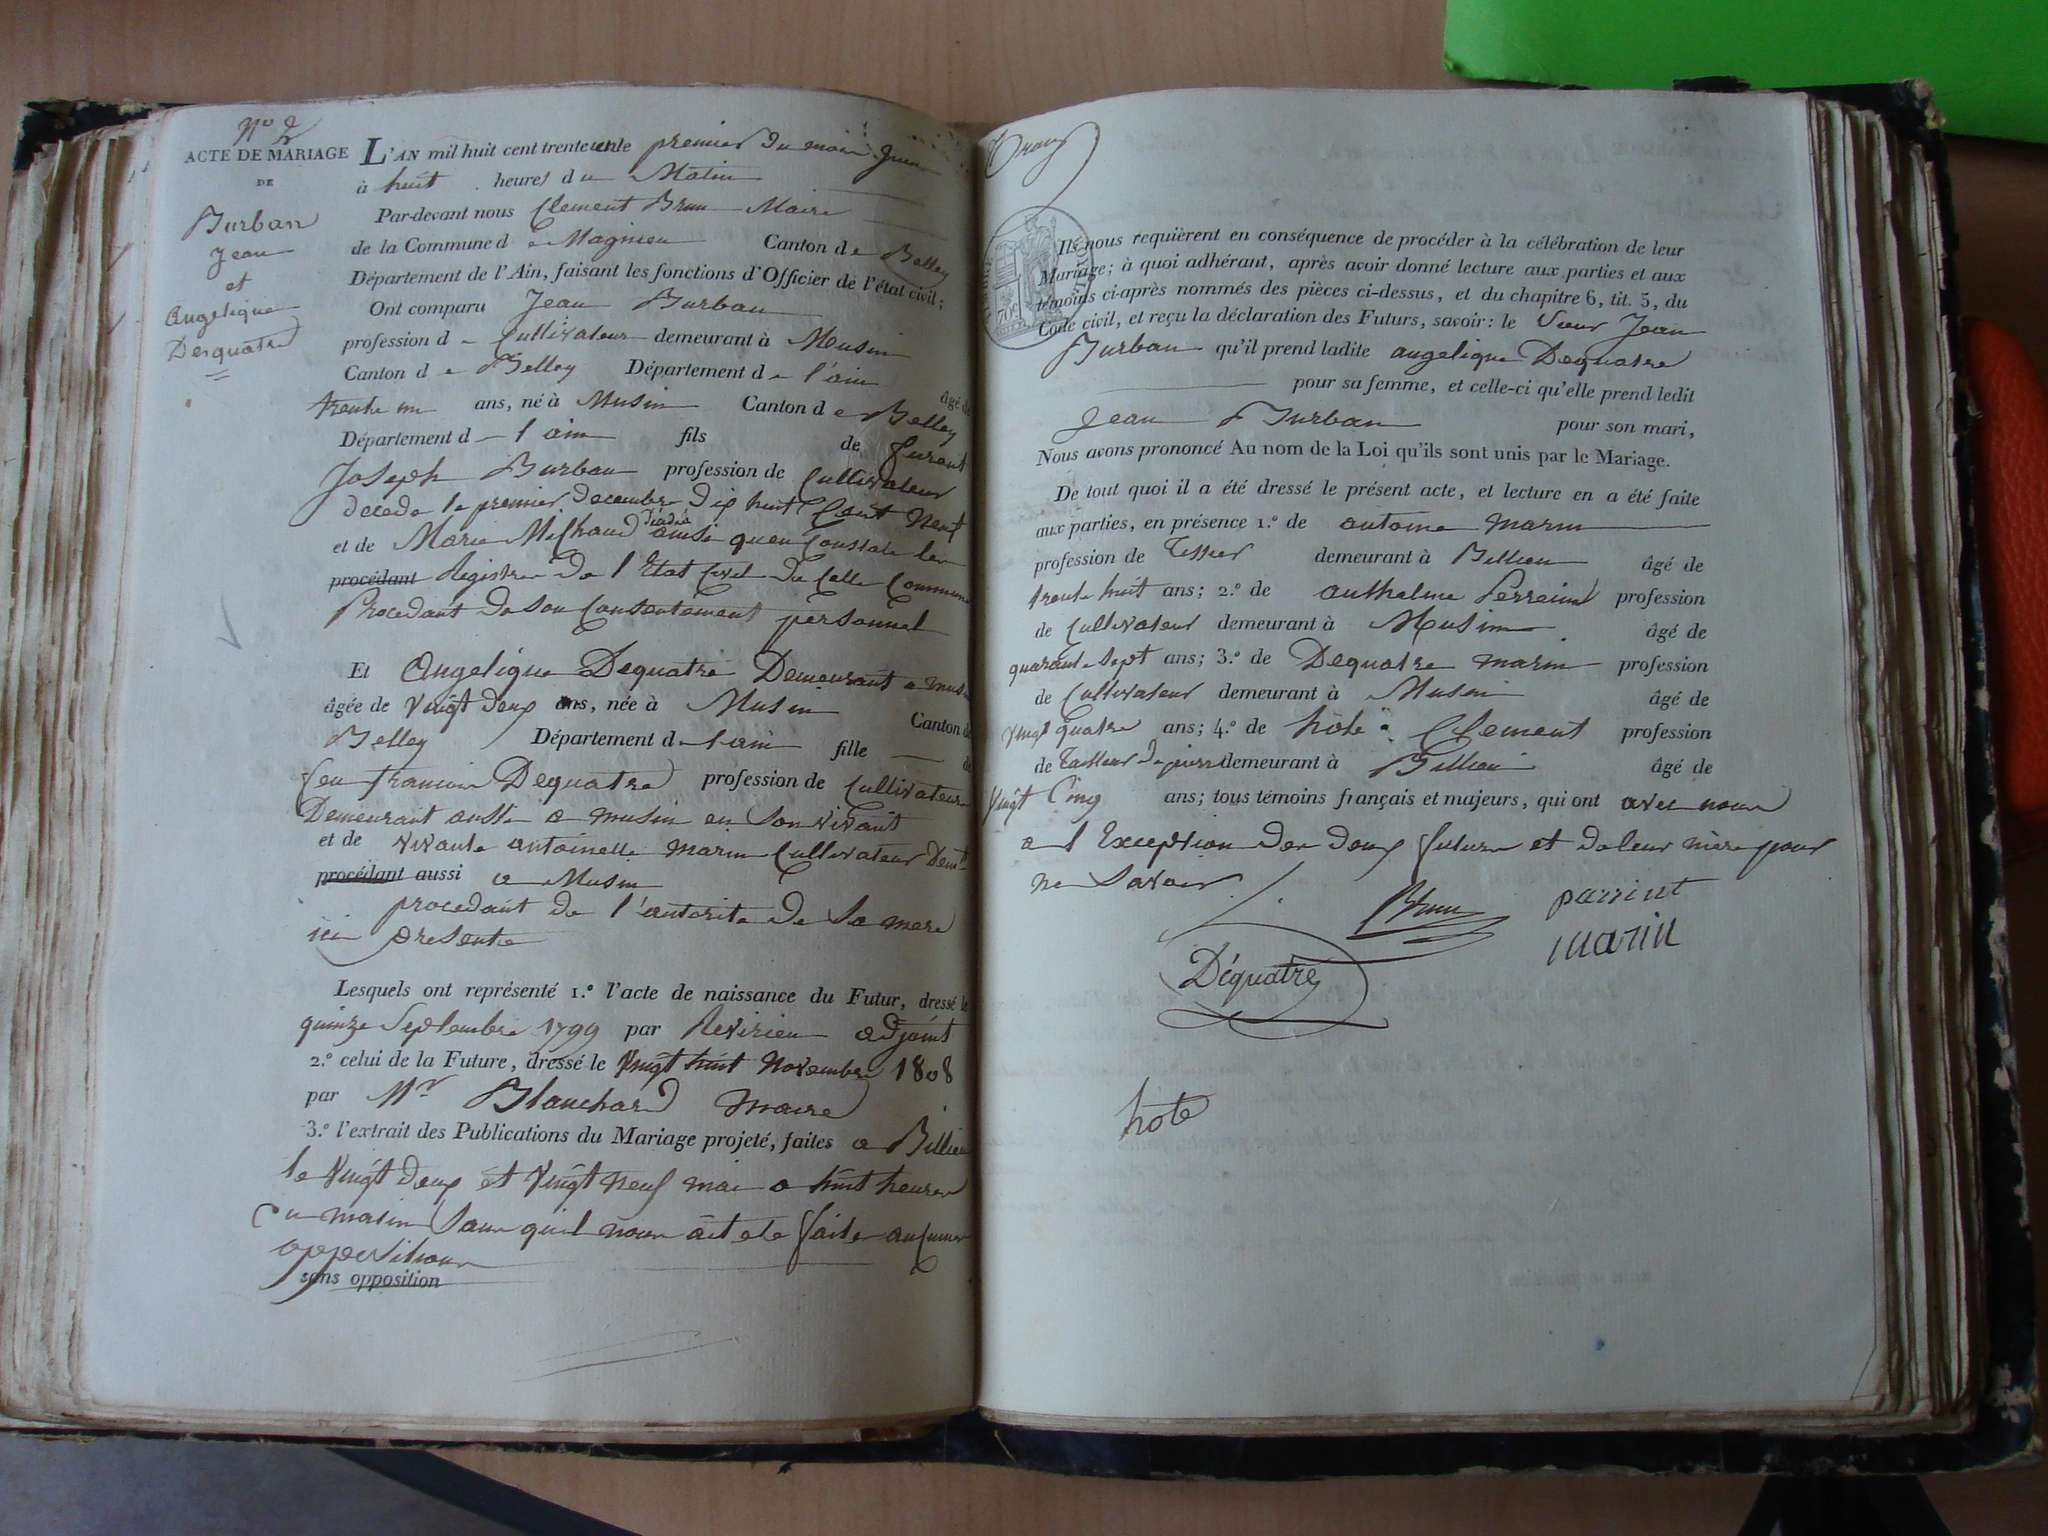 N.º 2
ACTE DE MARIAGE
DE
Burban
Jean
et
Angelique
Dequatre
L'AN mil huit cent trente un le premier du mois Juin
à huit heures du Matin
Par-devant nous Clement Brun Maire
de la Commune de Magnieu Canton de Belley
Département de l'Ain, faisant les fonctions d'Officier de l'état civil;
Ont comparu Jean Burban
profession d Cultivateur demeurant à Musin
Canton de Belley Département de l'ain âgé de
trente un ans, né à Musin Canton de Belley
Département d l'ain fils de
Joseph Burban profession de Cultivateur
decede le premier decembre dix huit Cent Neuf
et de Marie Michaud décédé ainsi quen Constate les
procédant Registres de l'Etat Civil de Celle Commune
Procedant de son Consentement personnel
Et Angelique Dequatre Demeurant a musin
âgée de vingt deux ans, née à Musin Canton de
Belley Département de l'ain fille de
feu francois Dequatre profession de Cultivateur
Demeurant aussi a musin en Son vivant
et de vivante antoinette marin Cultivateur Demt
procédant aussi a Musin
procedant de l'autorite de Sa mere
ici presente
Lesquels ont représenté 1.º l'acte de naissance du Futur, dressé le
quinze Septembre 1799 par Revirieu adjoint
2.º celui de la Future, dressé le Vingt huit Novembre 1808
par Mr Blanchard maire
3.º l'extrait des Publications du Mariage projeté, faites a Billieu
le vingt deux et vingt neuf mai a huit heures
du matin Sans quil nous ait ete faites aucunes
oppositions
sans opposition
Ils nous requièrent en conséquence de procéder à la célébration de leur
Mariage; à quoi adhérant, après avoir donné lecture aux parties et aux
témoins ci-après nommés des pièces ci-dessus, et du chapitre 6, tit. 5, du
Code civil, et reçu la déclaration des Futurs, savoir: le Sieur Jean
Burban qu'il prend ladite angelique Dequatre
pour sa femme, et celle-ci qu'elle prend ledit
Jean Burban pour son mari,
Nous avons prononcé Au nom de la Loi qu'ils sont unis par le Mariage.
De tout quoi il a été dressé le présent acte, et lecture en a été faite
aux parties, en présence 1.º de antoine marin
profession de Tissier demeurant à Billieu âgé de
trente huit ans; 2.º de anthelme Perreint profession
de Cultivateur demeurant à Musin âgé de
quarante sept ans; 3.º de Dequatre marin profession
de Cultivateur demeurant à Musin âgé de
vingt quatre ans; 4.º de hôte Clement profession
de Tailleur de pierre demeurant à Billieu âgé de
Vingt Cinq ans; tous témoins français et majeurs, qui ont avec nous
a l'Exception des deux futurs et de leur mère pour
ne Savoir
Brun
parrint
marin
Déquatre
hote